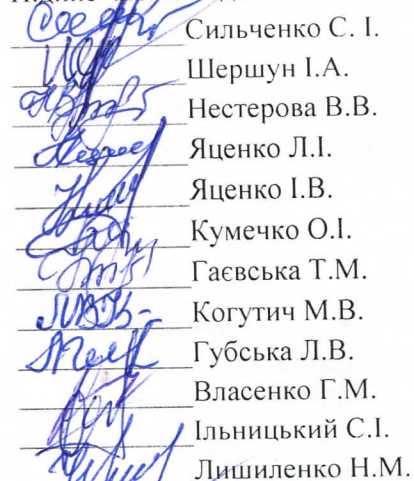 Сильченко С. І.
Шершун І.А.
Нестерова В.В.
Яценко Л.І.
Яценко І.В.
Кумечко О.І.
Гаєвська Т.М.
Когутич М.В.
Губська Л.В.
Власенко Г.М.
Ільницький С.І.
Лишиленко Н.М.